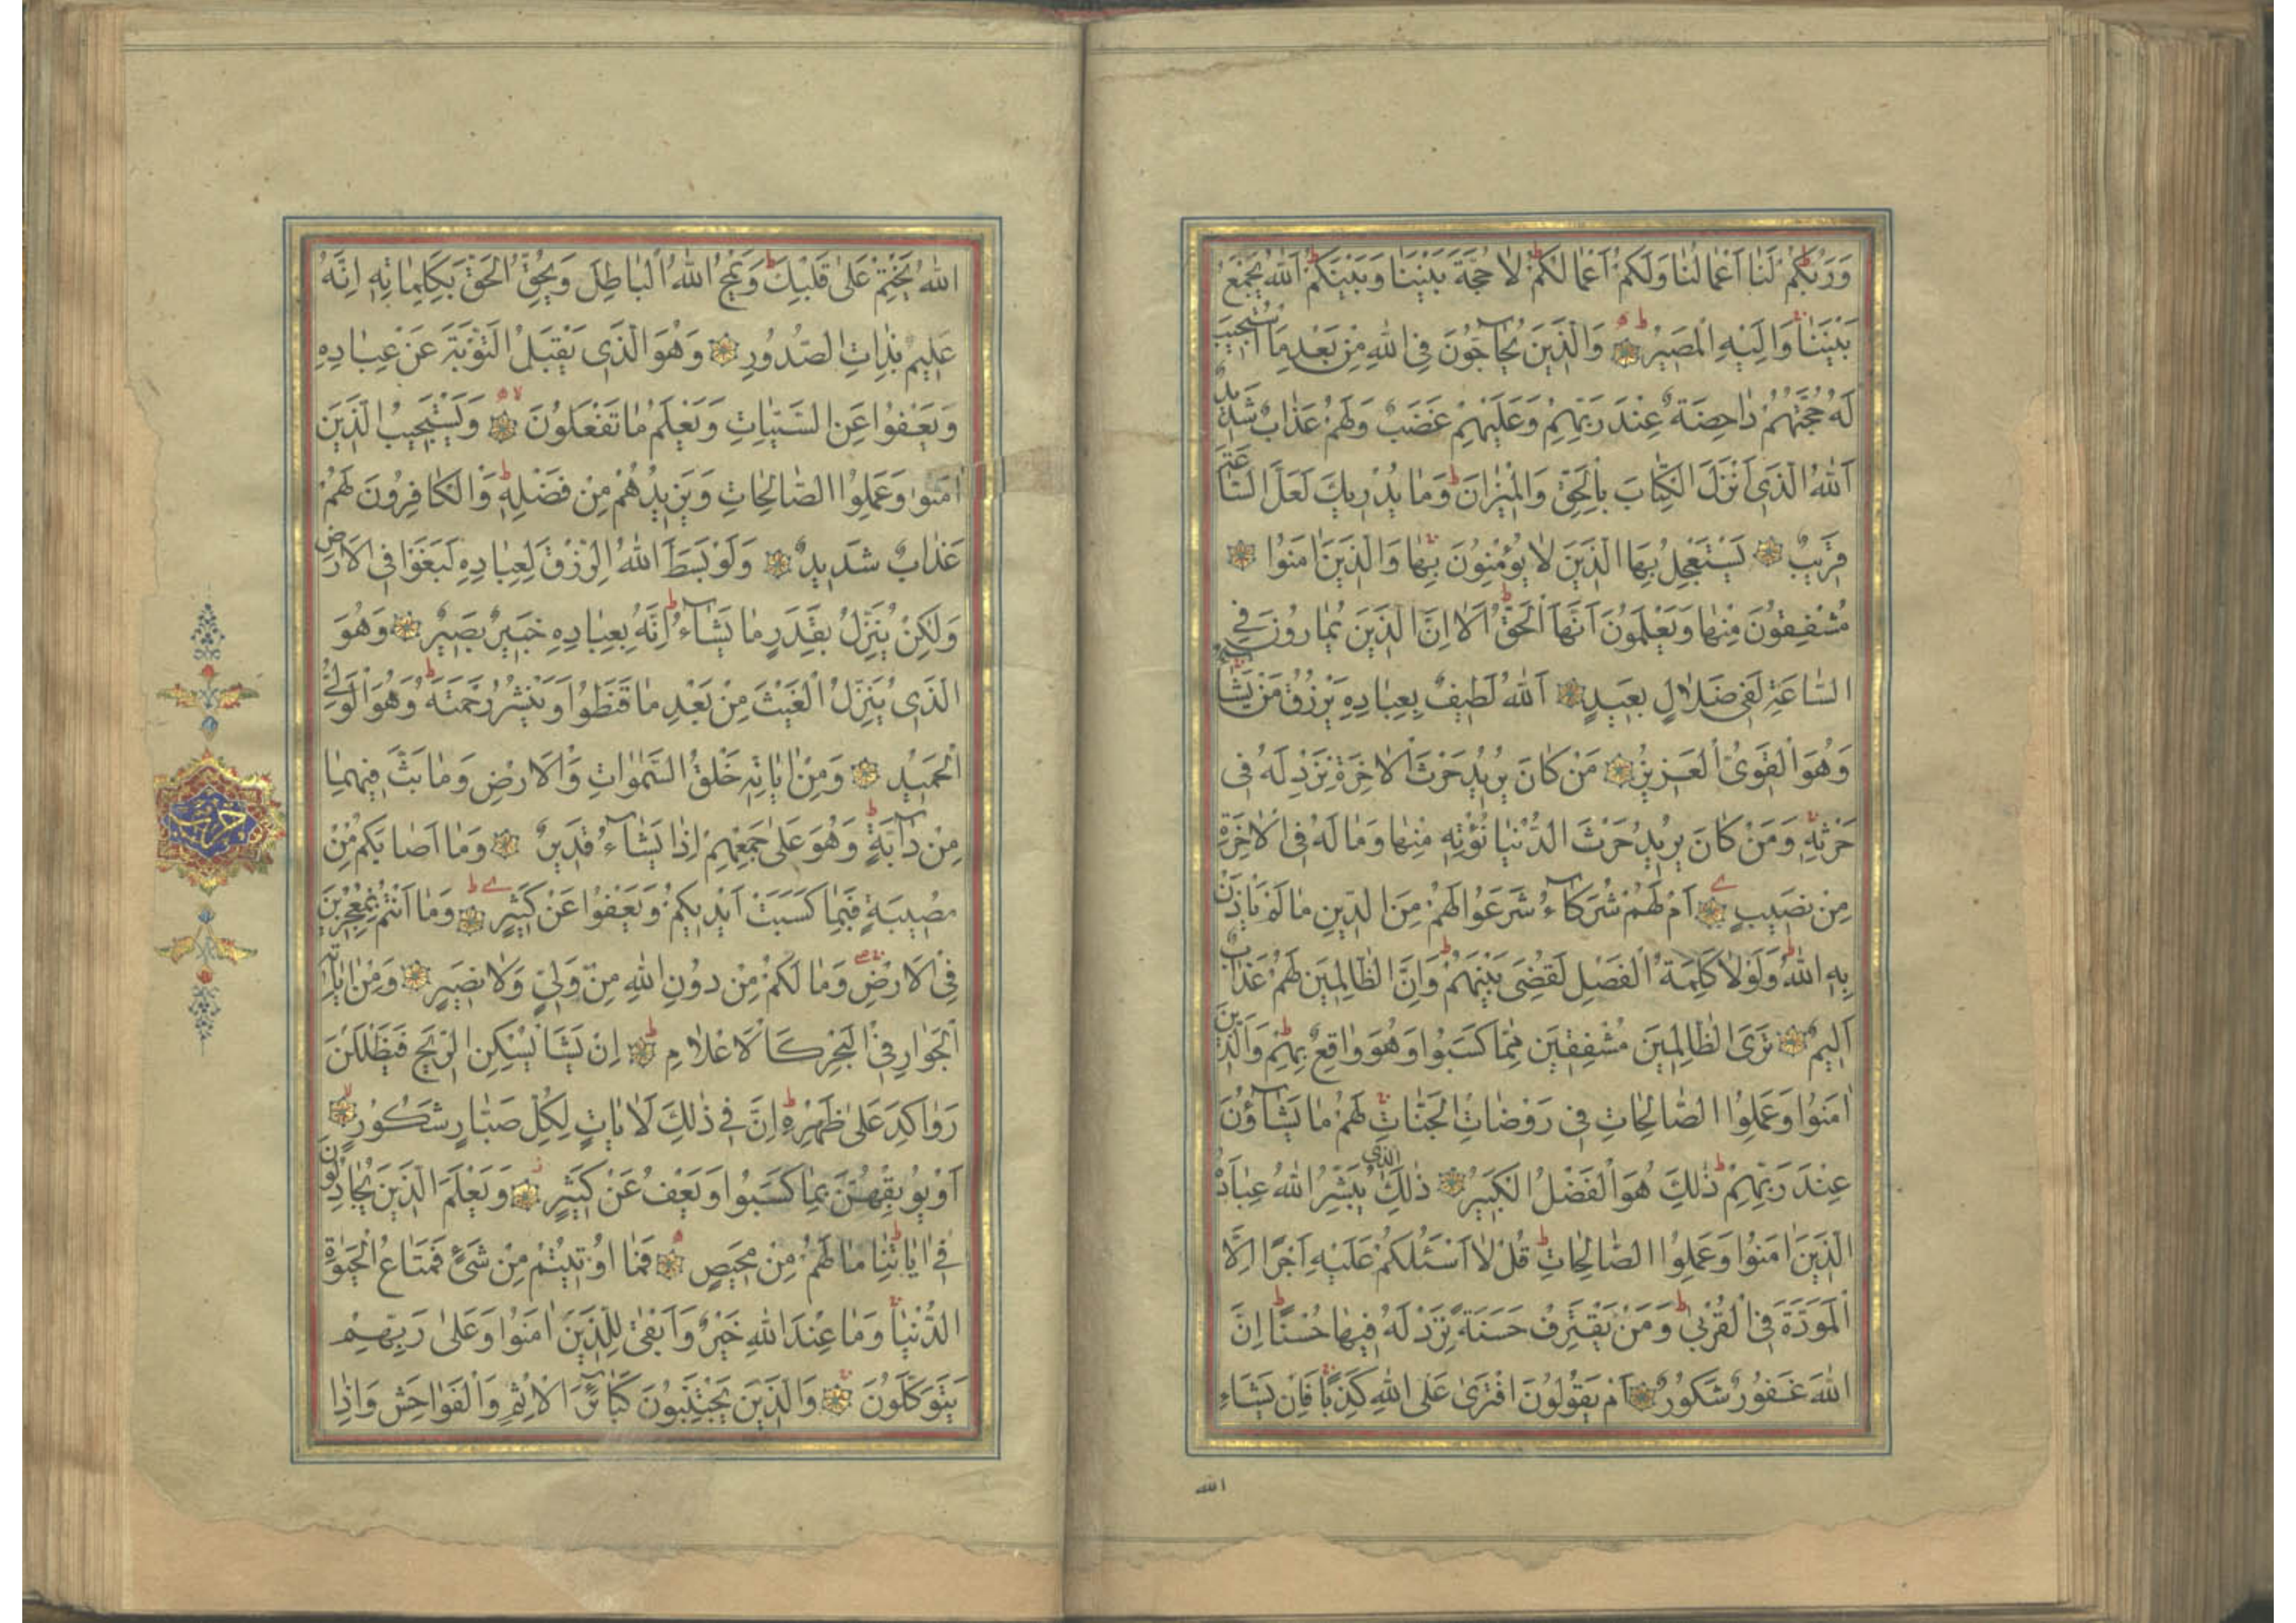 وَرَبُّكُمْ لَنَا اَعْمَالُنَا وَلَكُمْ اَعْمَالُكُمْ لَا حُجَّةَ بَيْنَنَا وَبَيْنَكُمْ اَللّٰهُ يَجْمَعُ
بَيْنَنَا وَاِلَيْهِ الْمَصِيرُ وَالَّذِينَ يُحَاجُّونَ فِي اللّٰهِ مِنْ بَعْدِ مَا اسْتُجِيبَ
لَهُ حُجَّتُهُمْ دَاحِضَةٌ عِنْدَ رَبِّهِمْ وَعَلَيْهِمْ غَضَبٌ وَلَهُمْ عَذَابٌ شَدِيدٌ
اَللّٰهُ الَّذِي اَنْزَلَ الْكِتَابَ بِالْحَقِّ وَالْمِيزَانَ وَمَا يُدْرِيكَ لَعَلَّ السَّاعَةَ
قَرِيبٌ يَسْتَعْجِلُ بِهَا الَّذِينَ لَا يُؤْمِنُونَ بِهَا وَالَّذِينَ اٰمَنُوا
مُشْفِقُونَ مِنْهَا وَيَعْلَمُونَ اَنَّهَا الْحَقُّ اَلَا اِنَّ الَّذِينَ يُمَارُونَ فِي
السَّاعَةِ لَفِي ضَلَالٍ بَعِيدٍ اَللّٰهُ لَطِيفٌ بِعِبَادِهِ يَرْزُقُ مَنْ يَشَاءُ
وَهُوَ الْقَوِيُّ الْعَزِيزُ مَنْ كَانَ يُرِيدُ حَرْثَ الْاٰخِرَةِ نَزِدْ لَهُ فِي
حَرْثِهِ وَمَنْ كَانَ يُرِيدُ حَرْثَ الدُّنْيَا نُؤْتِهِ مِنْهَا وَمَا لَهُ فِي الْاٰخِرَةِ
مِنْ نَصِيبٍ اَمْ لَهُمْ شُرَكَاءُ شَرَعُوا لَهُمْ مِنَ الدِّينِ مَا لَمْ يَاْذَنْ
بِهِ اللّٰهُ وَلَوْلَا كَلِمَةُ الْفَصْلِ لَقُضِيَ بَيْنَهُمْ وَاِنَّ الظَّالِمِينَ لَهُمْ عَذَابٌ
اَلِيمٌ تَرَى الظَّالِمِينَ مُشْفِقِينَ مِمَّا كَسَبُوا وَهُوَ وَاقِعٌ بِهِمْ وَالَّذِينَ
اٰمَنُوا وَعَمِلُوا الصَّالِحَاتِ فِي رَوْضَاتِ الْجَنَّاتِ لَهُمْ مَا يَشَاؤُنَ
عِنْدَ رَبِّهِمْ ذٰلِكَ هُوَ الْفَضْلُ الْكَبِيرُ ذٰلِكَ الَّذِي يُبَشِّرُ اللّٰهُ عِبَادَهُ
الَّذِينَ اٰمَنُوا وَعَمِلُوا الصَّالِحَاتِ قُلْ لَا اَسْئَلُكُمْ عَلَيْهِ اَجْرًا اِلَّا
الْمَوَدَّةَ فِي الْقُرْبٰى وَمَنْ يَقْتَرِفْ حَسَنَةً نَزِدْ لَهُ فِيهَا حُسْنًا اِنَّ
اللّٰهَ غَفُورٌ شَكُورٌ اَمْ يَقُولُونَ افْتَرٰى عَلَى اللّٰهِ كَذِبًا فَاِنْ يَشَاءِ
الله
اللّٰهُ يَخْتِمْ عَلٰى قَلْبِكَ وَيَمْحُ اللّٰهُ الْبَاطِلَ وَيُحِقُّ الْحَقَّ بِكَلِمَاتِهِ اِنَّهُ
عَلِيمٌ بِذَاتِ الصُّدُورِ وَهُوَ الَّذِي يَقْبَلُ التَّوْبَةَ عَنْ عِبَادِهِ
وَيَعْفُوا عَنِ السَّيِّئَاتِ وَيَعْلَمُ مَا تَفْعَلُونَ وَيَسْتَجِيبُ الَّذِينَ
اٰمَنُوا وَعَمِلُوا الصَّالِحَاتِ وَيَزِيدُهُمْ مِنْ فَضْلِهِ وَالْكَافِرُونَ لَهُمْ
عَذَابٌ شَدِيدٌ وَلَوْ بَسَطَ اللّٰهُ الرِّزْقَ لِعِبَادِهِ لَبَغَوْا فِي الْاَرْضِ
وَلٰكِنْ يُنَزِّلُ بِقَدَرٍ مَا يَشَاءُ اِنَّهُ بِعِبَادِهِ خَبِيرٌ بَصِيرٌ وَهُوَ
الَّذِي يُنَزِّلُ الْغَيْثَ مِنْ بَعْدِ مَا قَنَطُوا وَيَنْشُرُ رَحْمَتَهُ وَهُوَ الْوَلِيُّ
الْحَمِيدُ وَمِنْ اٰيَاتِهِ خَلْقُ السَّمٰوَاتِ وَالْاَرْضِ وَمَا بَثَّ فِيهِمَا
مِنْ دَابَّةٍ وَهُوَ عَلٰى جَمْعِهِمْ اِذَا يَشَاءُ قَدِيرٌ وَمَا اَصَابَكُمْ مِنْ
مُصِيبَةٍ فَبِمَا كَسَبَتْ اَيْدِيكُمْ وَيَعْفُوا عَنْ كَثِيرٍ وَمَا اَنْتُمْ بِمُعْجِزِينَ
فِي الْاَرْضِ وَمَا لَكُمْ مِنْ دُونِ اللّٰهِ مِنْ وَلِيٍّ وَلَا نَصِيرٍ وَمِنْ اٰيَاتِهِ
الْجَوَارِ فِي الْبَحْرِ كَالْاَعْلَامِ اِنْ يَشَاْ يُسْكِنِ الرِّيحَ فَيَظْلَلْنَ
رَوَاكِدَ عَلٰى ظَهْرِهِ اِنَّ فِي ذٰلِكَ لَاٰيَاتٍ لِكُلِّ صَبَّارٍ شَكُورٍ
اَوْ يُوبِقْهُنَّ بِمَا كَسَبُوا وَيَعْفُ عَنْ كَثِيرٍ وَيَعْلَمَ الَّذِينَ يُجَادِلُونَ
فِي اٰيَاتِنَا مَا لَهُمْ مِنْ مَحِيصٍ فَمَا اُوتِيتُمْ مِنْ شَيْءٍ فَمَتَاعُ الْحَيٰوةِ
الدُّنْيَا وَمَا عِنْدَ اللّٰهِ خَيْرٌ وَاَبْقٰى لِلَّذِينَ اٰمَنُوا وَعَلٰى رَبِّهِمْ
يَتَوَكَّلُونَ وَالَّذِينَ يَجْتَنِبُونَ كَبَائِرَ الْاِثْمِ وَالْفَوَاحِشَ وَاِذَا
حزب